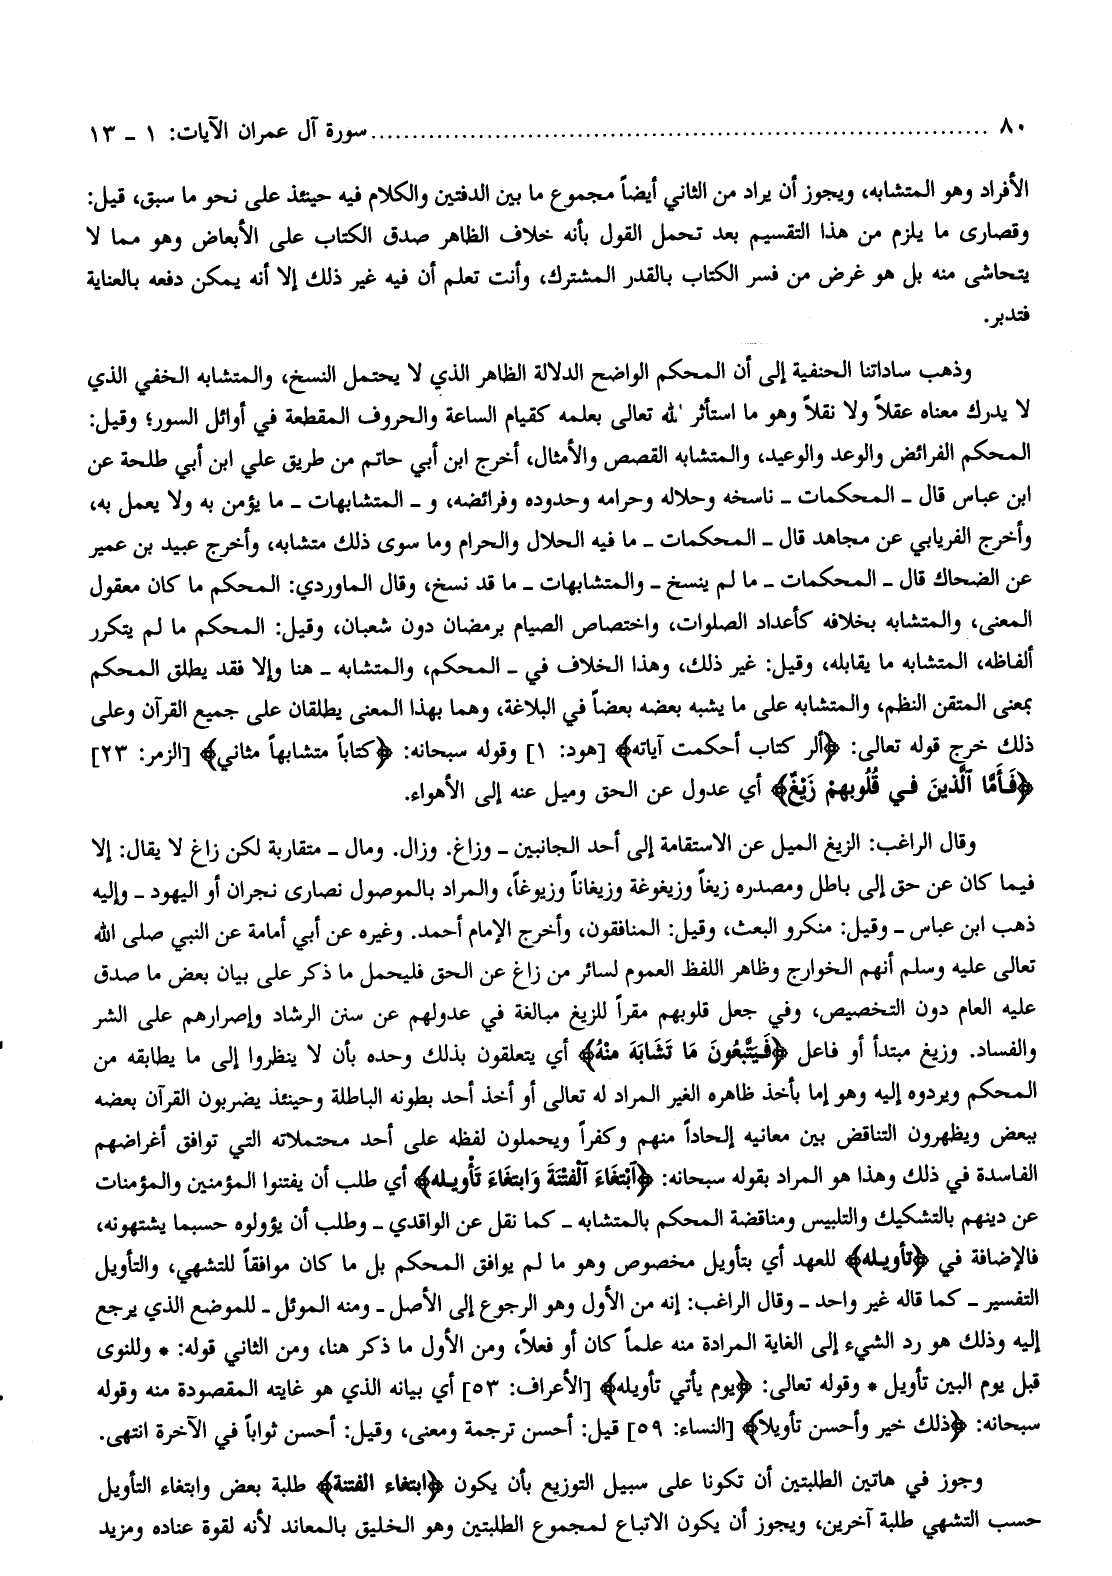 ٨٠ ........................................................................... سورة آل عمران الآيات: ١ ـ ١٣
الأفراد وهو المتشابه، ويجوز أن يراد من الثاني أيضاً مجموع ما بين الدفتين والكلام فيه حينئذ على نحو ما سبق، قيل:
وقصارى ما يلزم من هذا التقسيم بعد تحمل القول بأنه خلاف الظاهر صدق الكتاب على الأبعاض وهو مما لا
يتحاشى منه بل هو غرض من فسر الكتاب بالقدر المشترك، وأنت تعلم أن فيه غير ذلك إلا أنه يمكن دفعه بالعناية
فتدبر.
وذهب ساداتنا الحنفية إلى أن المحكم الواضح الدلالة الظاهر الذي لا يحتمل النسخ، والمتشابه الخفي الذي
لا يدرك معناه عقلاً ولا نقلاً وهو ما استأثر الله تعالى بعلمه كقيام الساعة والحروف المقطعة في أوائل السور؛ وقيل:
المحكم الفرائض والوعد والوعيد، والمتشابه القصص والأمثال، أخرج ابن أبي حاتم من طريق علي ابن أبي طلحة عن
ابن عباس قال ـ المحكمات ـ ناسخه وحلاله وحرامه وحدوده وفرائضه، و ـ المتشابهات ـ ما يؤمن به ولا يعمل به،
وأخرج الفريابي عن مجاهد قال ـ المحكمات ـ ما فيه الحلال والحرام وما سوى ذلك متشابه، وأخرج عبيد بن عمير
عن الضحاك قال ـ المحكمات ـ ما لم ينسخ ـ والمتشابهات ـ ما قد نسخ، وقال الماوردي: المحكم ما كان معقول
المعنى، والمتشابه بخلافه كأعداد الصلوات، واختصاص الصيام برمضان دون شعبان، وقيل: المحكم ما لم يتكرر
ألفاظه، المتشابه ما يقابله، وقيل: غير ذلك، وهذا الخلاف في ـ المحكم، والمتشابه ـ هنا وإلا فقد يطلق المحكم
بمعنى المتقن النظم، والمتشابه على ما يشبه بعضه بعضاً في البلاغة، وهما بهذا المعنى يطلقان على جميع القرآن وعلى
ذلك خرج قوله تعالى: ﴿ألر كتاب أحكمت آياته﴾ [هود: ١] وقوله سبحانه: ﴿كتاباً متشابهاً مثاني﴾ [الزمر: ٢٣]
﴿فَأَمَّا ٱلَّذينَ في قُلُوبهمْ زَيْغٌ﴾ أي عدول عن الحق وميل عنه إلى الأهواء.
وقال الراغب: الزيغ الميل عن الاستقامة إلى أحد الجانبين ـ وزاغ. وزال. ومال ـ متقاربة لكن زاغ لا يقال: إلا
فيما كان عن حق إلى باطل ومصدره زيغاً وزيغوغة وزيغاناً وزيوغاً، والمراد بالموصول نصارى نجران أو اليهود ـ وإليه
ذهب ابن عباس ـ وقيل: منكرو البعث، وقيل: المنافقون، وأخرج الإمام أحمد. وغيره عن أبي أمامة عن النبي صلى الله
تعالى عليه وسلم أنهم الخوارج وظاهر اللفظ العموم لسائر من زاغ عن الحق فليحمل ما ذكر على بيان بعض ما صدق
عليه العام دون التخصيص، وفي جعل قلوبهم مقراً للزيغ مبالغة في عدولهم عن سنن الرشاد وإصرارهم على الشر
والفساد. وزيغ مبتدأ أو فاعل ﴿فَيَتَّبعُونَ مَا تَشَابَهَ منْهُ﴾ أي يتعلقون بذلك وحده بأن لا ينظروا إلى ما يطابقه من
المحكم ويردوه إليه وهو إما بأخذ ظاهره الغير المراد له تعالى أو أخذ أحد بطونه الباطلة وحينئذ يضربون القرآن بعضه
ببعض ويظهرون التناقض بين معانيه إلحاداً منهم وكفراً ويحملون لفظه على أحد محتملاته التي توافق أغراضهم
الفاسدة في ذلك وهذا هو المراد بقوله سبحانه: ﴿ٱبْتغَاءَ ٱلْفتْنَةَ وَابتغَاءَ تَأْويـله﴾ أي طلب أن يفتنوا المؤمنين والمؤمنات
عن دينهم بالتشكيك والتلبيس ومناقضة المحكم بالمتشابه ـ كما نقل عن الواقدي ـ وطلب أن يؤولوه حسبما يشتهونه،
فالإضافة في ﴿تأويـله﴾ للعهد أي بتأويل مخصوص وهو ما لم يوافق المحكم بل ما كان موافقاً للتشهي، والتأويل
التفسير ـ كما قاله غير واحد ـ وقال الراغب: إنه من الأول وهو الرجوع إلى الأصل ـ ومنه الموئل ـ للموضع الذي يرجع
إليه وذلك هو رد الشيء إلى الغاية المرادة منه علماً كان أو فعلاً، ومن الأول ما ذكر هنا، ومن الثاني قوله: * وللنوى
قبل يوم البين تأويل * وقوله تعالى: ﴿يوم يأتي تأويله﴾ [الأعراف: ٥٣] أي بيانه الذي هو غايته المقصودة منه وقوله
سبحانه: ﴿ذلك خير وأحسن تأويلا﴾ [النساء: ٥٩] قيل: أحسن ترجمة ومعنى، وقيل: أحسن ثواباً في الآخرة انتهى.
وجوز في هاتين الطلبتين أن تكونا على سبيل التوزيع بأن يكون ﴿ابتغاء الفتنة﴾ طلبة بعض وابتغاء التأويل
حسب التشهي طلبة آخرين، ويجوز أن يكون الاتباع لمجموع الطلبتين وهو الخليق بالمعاند لأنه لقوة عناده ومزيد